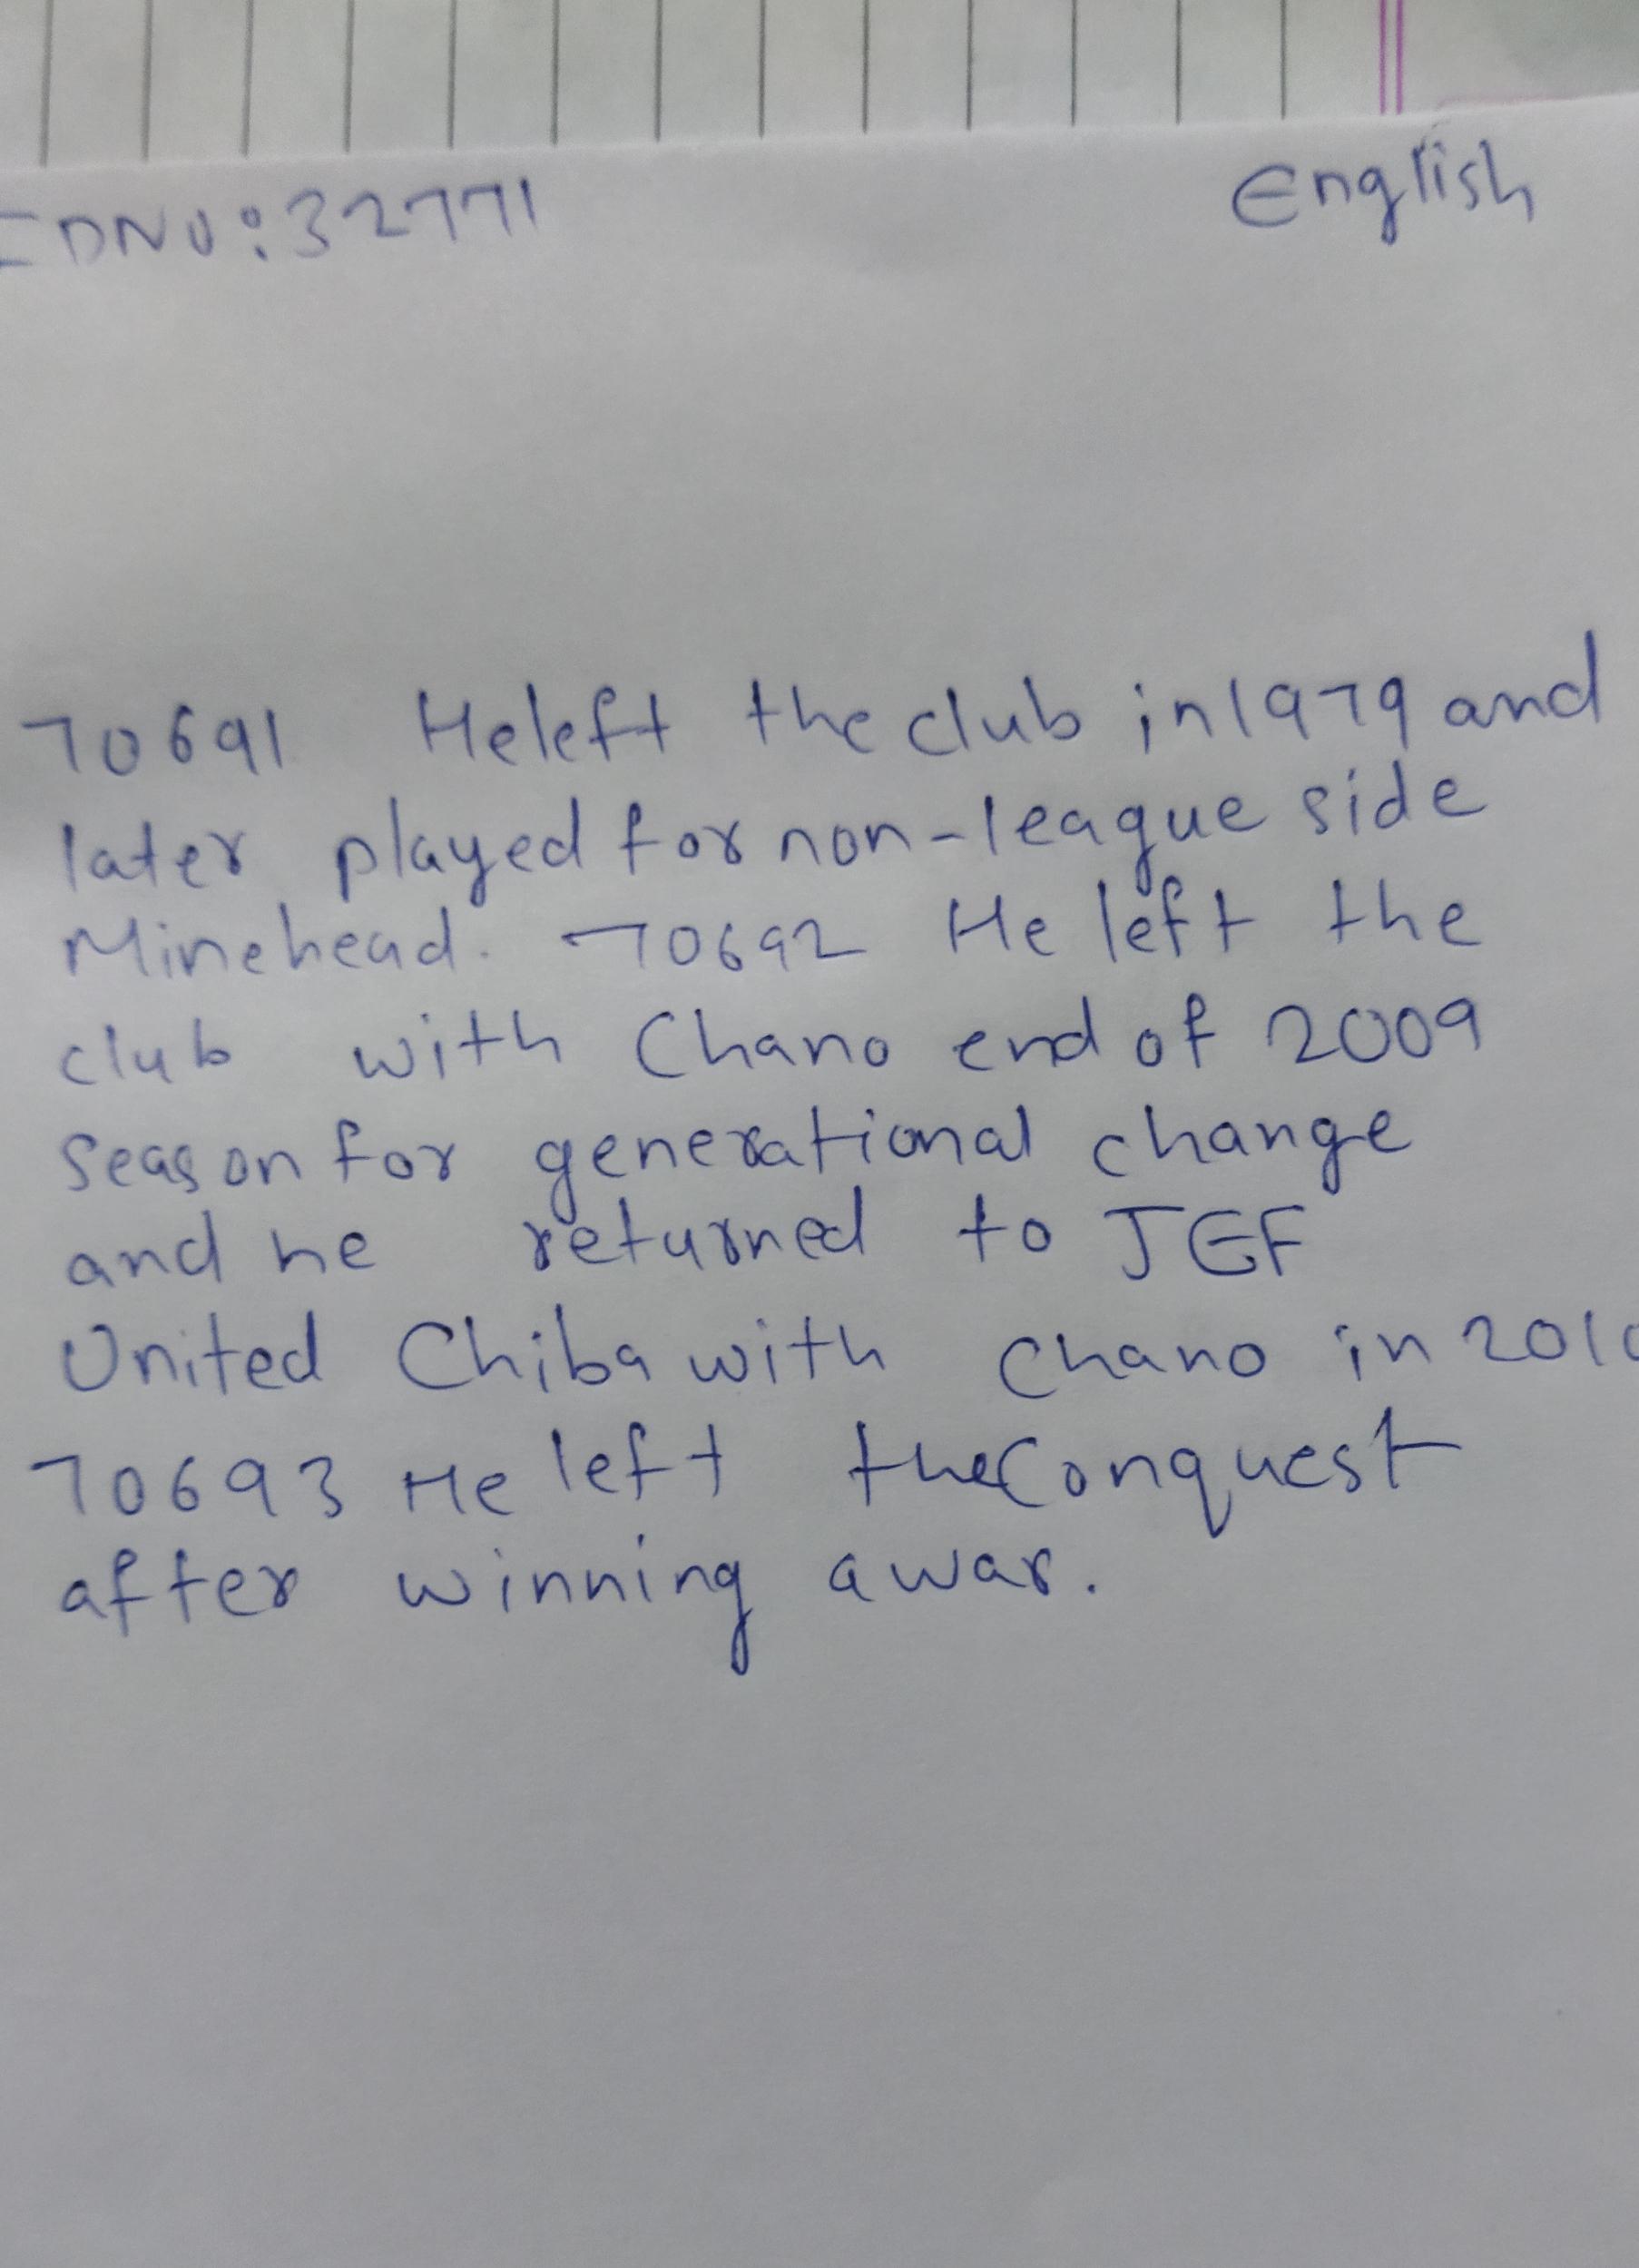 IDNO:32771
English
70691 He left the club in 1979 and
later played for non-league side
Minehead. 70692 He left the
club with Chano end of 2009
season for generational change
and he returned to JEF
United Chiba with Chano in 2010
70693 He left the Conquest
after winning a war.